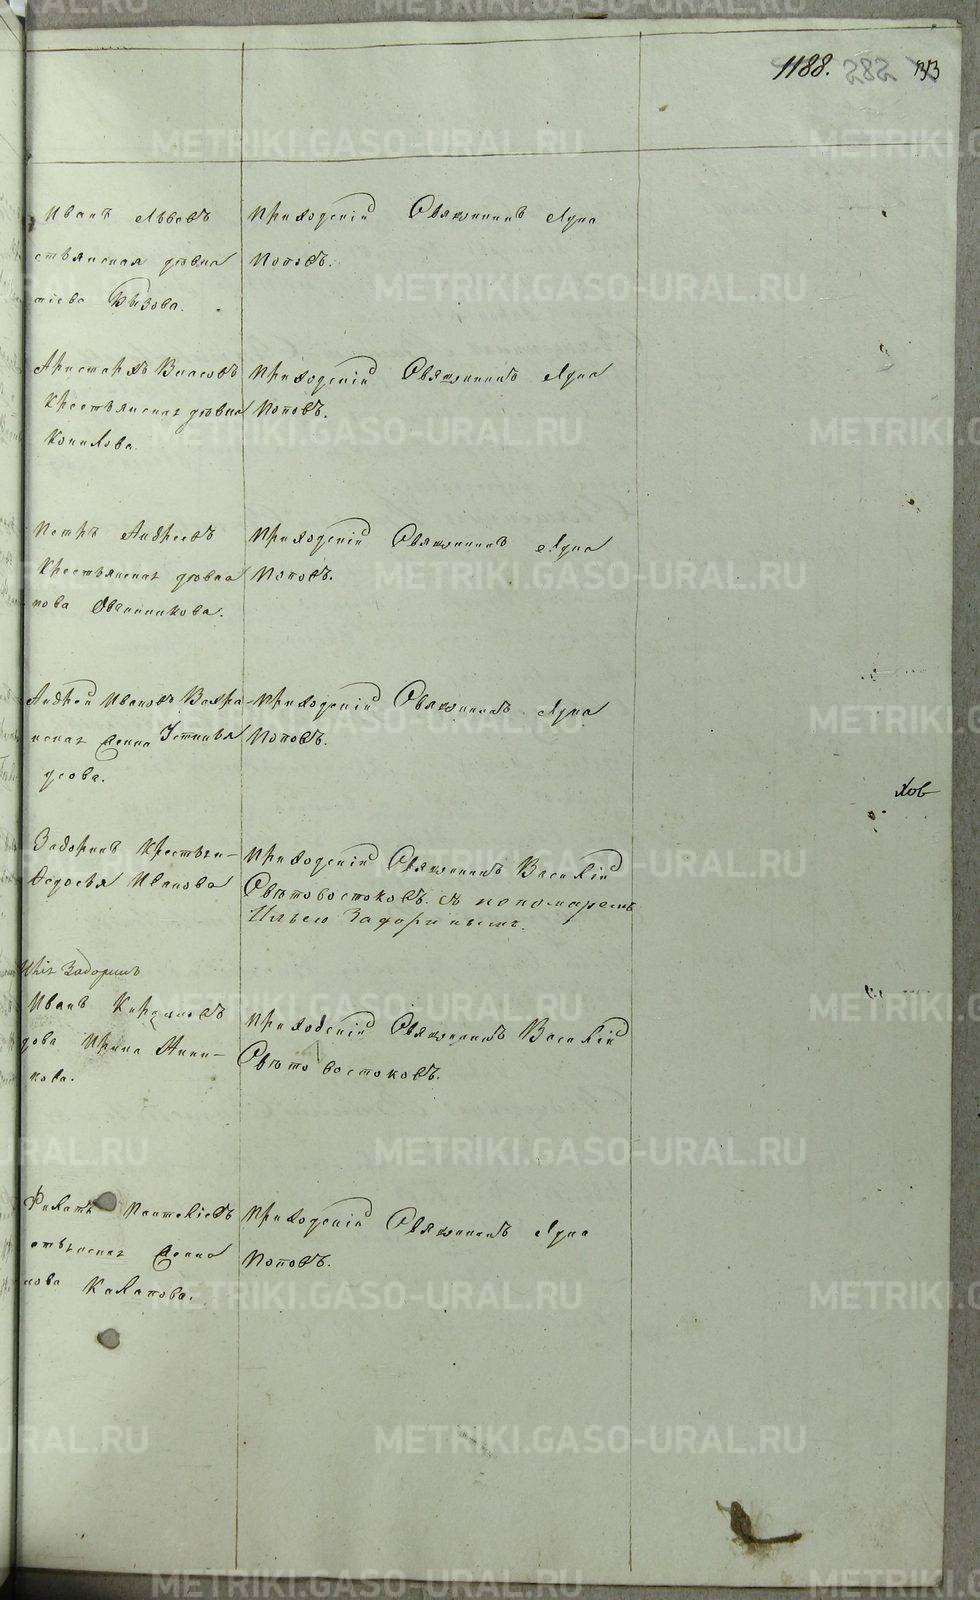 1188.
Иванъ Львовъ
стьянская дѣвка
Бызова.
Приходскій Священникъ Лука
Поповъ.
Аристархъ Власовъ
Крестьянская дѣвка
Копылова.
Приходскій Священникъ Лука
Поповъ.
Петръ Андреевъ
Крестьянская дѣвка
нова Овчинникова.
Приходскій Священникъ Лука
Поповъ.
Андрей Ивановъ
нская Устинья
Приходскій Священникъ Лука
Поповъ.
Задоринъ Крестьян-
Ѳедосья Иванова
Приходскій Священникъ Василій
Свѣтовостоковъ. съ пономаремъ
Ильею Задоринымъ.
Задоринъ
Иванъ
дова Ирина Аник-
кова.
Приходскій Священникъ Василій
Свѣтовостоковъ.
Филатъ
стьянская
нова Калапова.
Приходскій Священникъ Лука
Поповъ.
METRIKI.GASO-URAL.RU